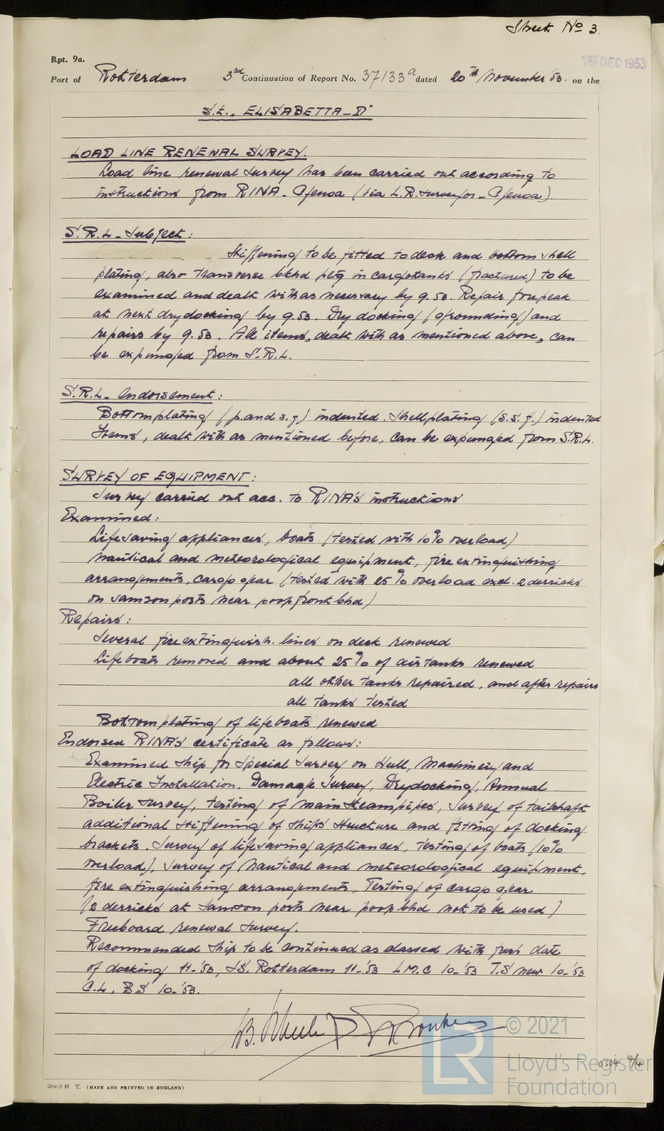 Sheet No 3.
Rpt. 9a.
19 DEC 1953
Port of Rotterdam 3rd Continuation of Report No. 37133a dated 20th November '53. on the
S.S. "ELISABETTA-D"
LOAD LINE RENEWAL SURVEY.
Load line renewal survey has been carried out according to
instructions from RINA - Genoa (via L.R. surveyors - Genoa).
S.R.L. - Subject:
Stiffening to be fitted to deck and bottom shell
plating, also transverse bkhd pltg in cargotanks (fractured) to be
examined and dealt with as necessary by 9.53. Repair forepeak
at next drydocking by 9.53. Dry docking (grounding) and
repairs by 9.53. All items, dealt with as mentioned above, can
be expunged from S.R.L.
S.R.L. - endorsement:
Bottomplating (p. and s.g.) indented. Shellplating (S.S.f.) indented
Items, dealt with as mentioned before, can be expunged from S.R.L.
SURVEY OF EQUIPMENT:
Survey carried out acc. to RINA's instructions
Examined:
Lifesaving appliances, boats (tested with 10% overload)
nautical and meteorological equipment, fire extinguishing
arrangements, cargo gear (tested with 25% overload excl. 2 derricks
on samson posts near poopfront bhd)
Repairs:
Several fire extinguish. lines on deck renewed
Lifeboats removed and about 25% of airtanks renewed
all other tanks repaired, and after repairs
all tanks tested
Bottomplating of lifeboats renewed
Endorsed RINA's certificate as follows:
Examined ship for Special Survey on Hull, Machinery and
Electric Installation. Damage Survey, Drydocking, Annual
Boiler survey, testing of main steampipes, Survey of tailshaft
additional stiffening of ship's structure and fitting of docking
brackets. Survey of lifesaving appliances, testing of boats (10%
overload), survey of nautical and meteorological equipment,
fire extinguishing arrangements, Testing of cargo gear
(2 derricks at Samson posts near poop bhd not to be used)
Freeboard renewal survey.
Recommended ship to be continued as classed with fresh date
of docking 11-'53, SS. Rotterdam 11-'53 LMC 10-'53 T.S new 10-'53
C.L, BS 10-'53.
© 2021
LR
Lloyd's Register
Foundation
T. (MADE AND PRINTED IN ENGLAND)